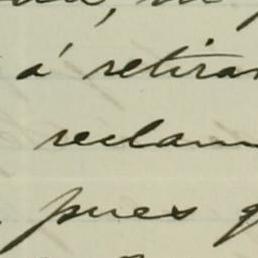 á retirar
reclam
pues q